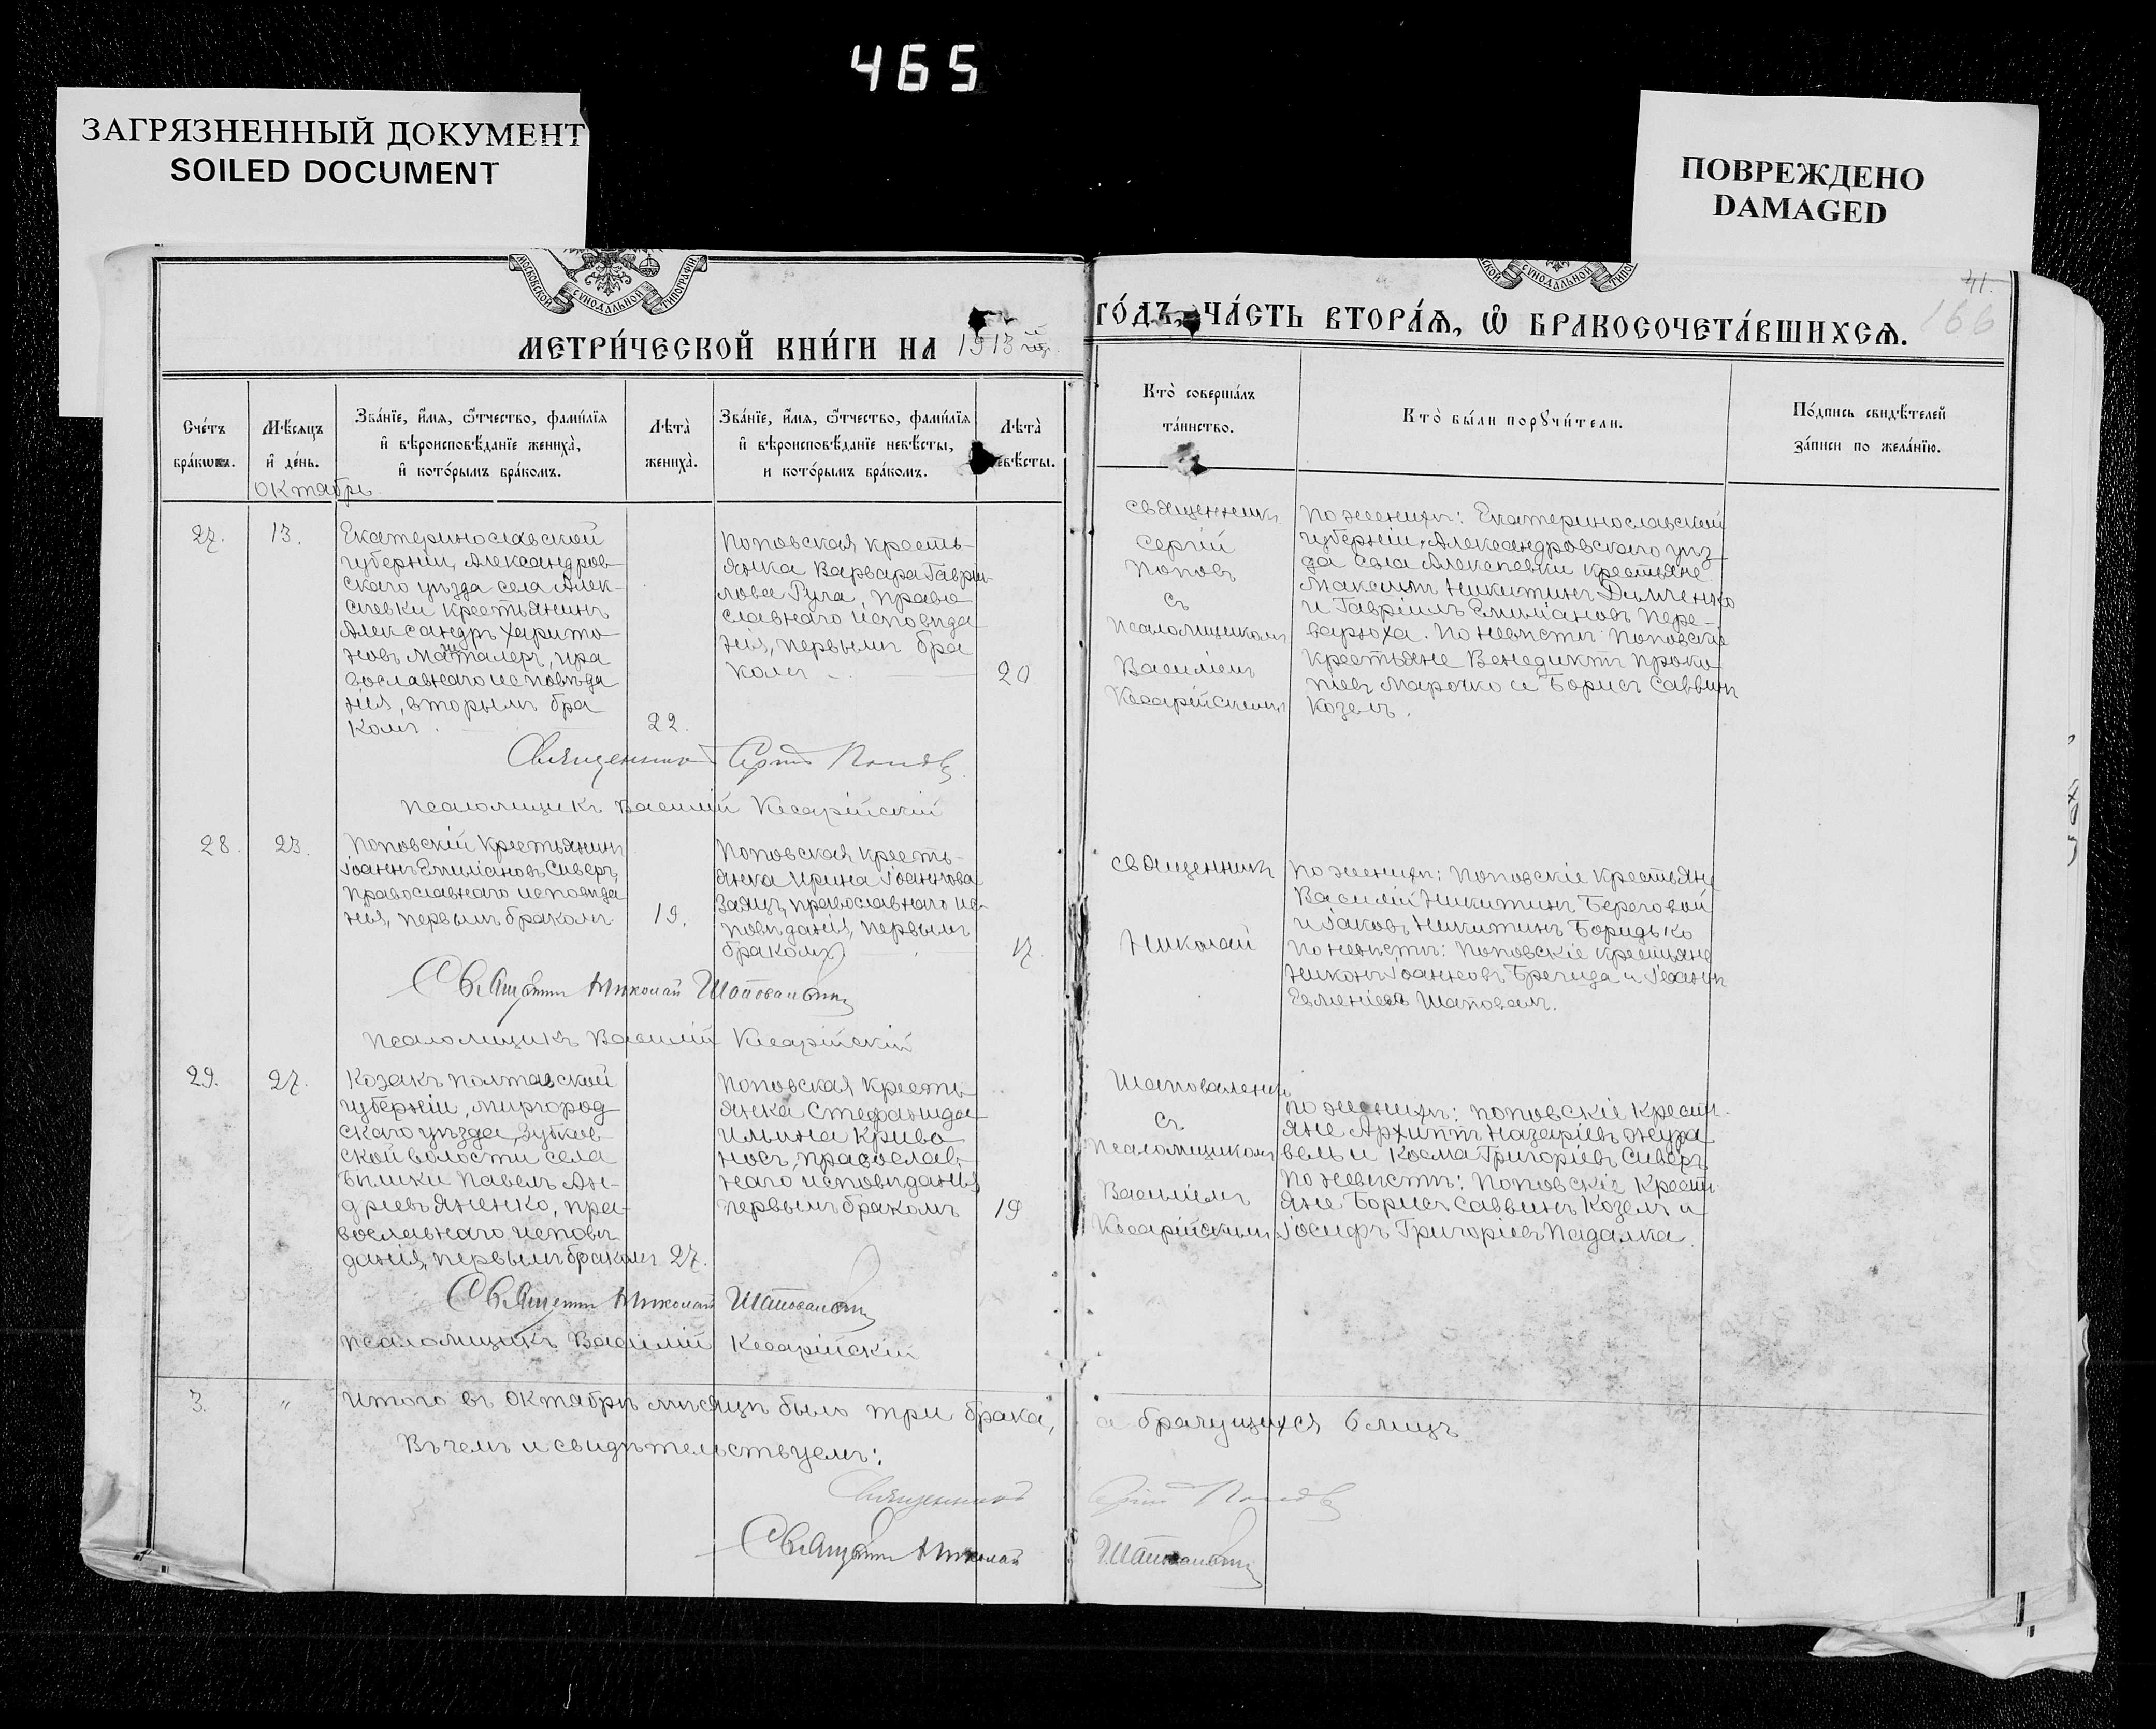 465
ЗАГРЯЗНЕННЫЙ ДОКУМЕНТ
SOILED DOCUMENT
ПОВРЕЖДЕНО
DAMAGED
МОСКОВСКОЙ СУНОДАЛЬНОЙ ТИПОГРАФІИ
41.
166
МЕТРИ́ЧЕСКОЙ КНИ́ГИ НА 1913 ГО́ДЪ, ЧА́СТЬ ВТОРА́Ѧ, Ѽ БРАКОСОЧЕТА́ВШИХСѦ.
Сче́тъ
бра́кѡвъ.
Мѣ́сяцъ
и҆ де́нь.
Зва́нїе, и҆́мя, ѻ҆́тчество, фами́лїя
и҆ вѣроисповѣ́данїе жениха̀,
и҆ кото́рымъ бра́комъ.
Лѣта̀
жениха̀.
Зва́нїе, и҆́мя, ѻ҆́тчество, фами́лїя
и҆ вѣроисповѣ́данїе невѣ́сты,
и кото́рымъ бра́комъ.
Лѣта̀
невѣ́сты.
Кто̀ соверша́лъ
та́инство.
Кто̀ бы́ли порꙋчи́тели.
По́дпись свидѣ́телей
за́писи по жела́нїю.
Октябрь
27.
13.
Екатеринославской
губерніи, Александров-
скаго уѣзда села Алек-
сѣевки крестьянинъ
Александръ Харито-
новъ
пра
вославнаго исповѣда
нія, вторымъ бра
комъ.
22.
Поповская кресть-
янка Варвара Гаврии-
лова Руга, право
славнаго исповѣда
нія, первымъ бра
комъ
20
Священникъ
Сергій
Поповъ
съ
Псаломщикомъ
Василіемъ
Кесарійскимъ
По женихѣ: Екатеринославской
губерніи, Александровскаго уѣз-
да села Алексѣевки крестьяне
Максимъ Никитинъ Димченко
и Гавріилъ Емиліановъ Пере-
варюха. По невѣстѣ: Поповскіе
крестьяне Венедиктъ Проко
піевъ Марочко и Борисъ Саввинъ
Козелъ.
Священникъ Сергій Поповъ
Псаломщикъ Василій Кесарійскій
28.
23.
Поповскій крестьянинъ
Іоаннъ Емиліановъ Сиверъ,
православнаго исповѣда
нія, первымъ бракомъ
19.
Поповская кресть-
янка Ирина Іоаннова
Заяцъ, православнаго ис-
повѣданія, первымъ
бракомъ
17
Священникъ
Николай
По женихѣ: Поповскіе крестьяне
Василій Никитинъ Береговой
и Іаковъ Никитинъ Боридько
По невѣстѣ: Поповскіе крестьяне
Никонъ Іоанновъ и Іоаннъ
Шаповалъ.
Священникъ Николай Шаповаленко
Псаломщикъ Василій Кесарійскій
29.
27.
Козакъ Полтавской
губерніи, Миргород
скаго уѣзда, Зубков-
ской волости села
Павелъ Ан-
дреевъ Яненко, пра-
вославнаго исповѣ-
данія, первымъ бракомъ
27.
Поповская кресть-
янка Стефанида
Ильина Криво
носъ, православ-
наго исповѣданія
первымъ бракомъ
19
Шаповаленко
Съ
Псаломщикомъ
Василіемъ
Кесарійскимъ
По женихѣ: Поповскіе кресть-
яне Архиппъ Назаріевъ Жура
вель и Косма Григоріевъ Сиверъ.
По невѣстѣ: Поповскіе кресть
яне Борисъ Саввинъ Козелъ и
Іосифъ Григоріевъ Падалка.
Священникъ Николай Шаповаленко
Псаломщикъ Василій Кесарійскій
3.
"
Итого въ октябрѣ мѣсяцѣ было три брака, а брачущихся 6 лицъ
Въ чемъ и свидѣтельствуемъ:
Священникъ Сергій Поповъ
Священникъ Николай Шаповаленко